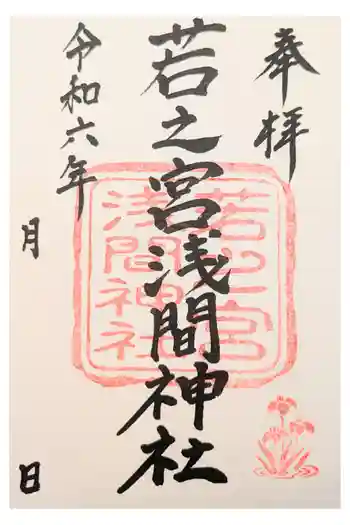 奉拝
若之宮浅間神社
若之宮
浅間神社
令和六年
月
日